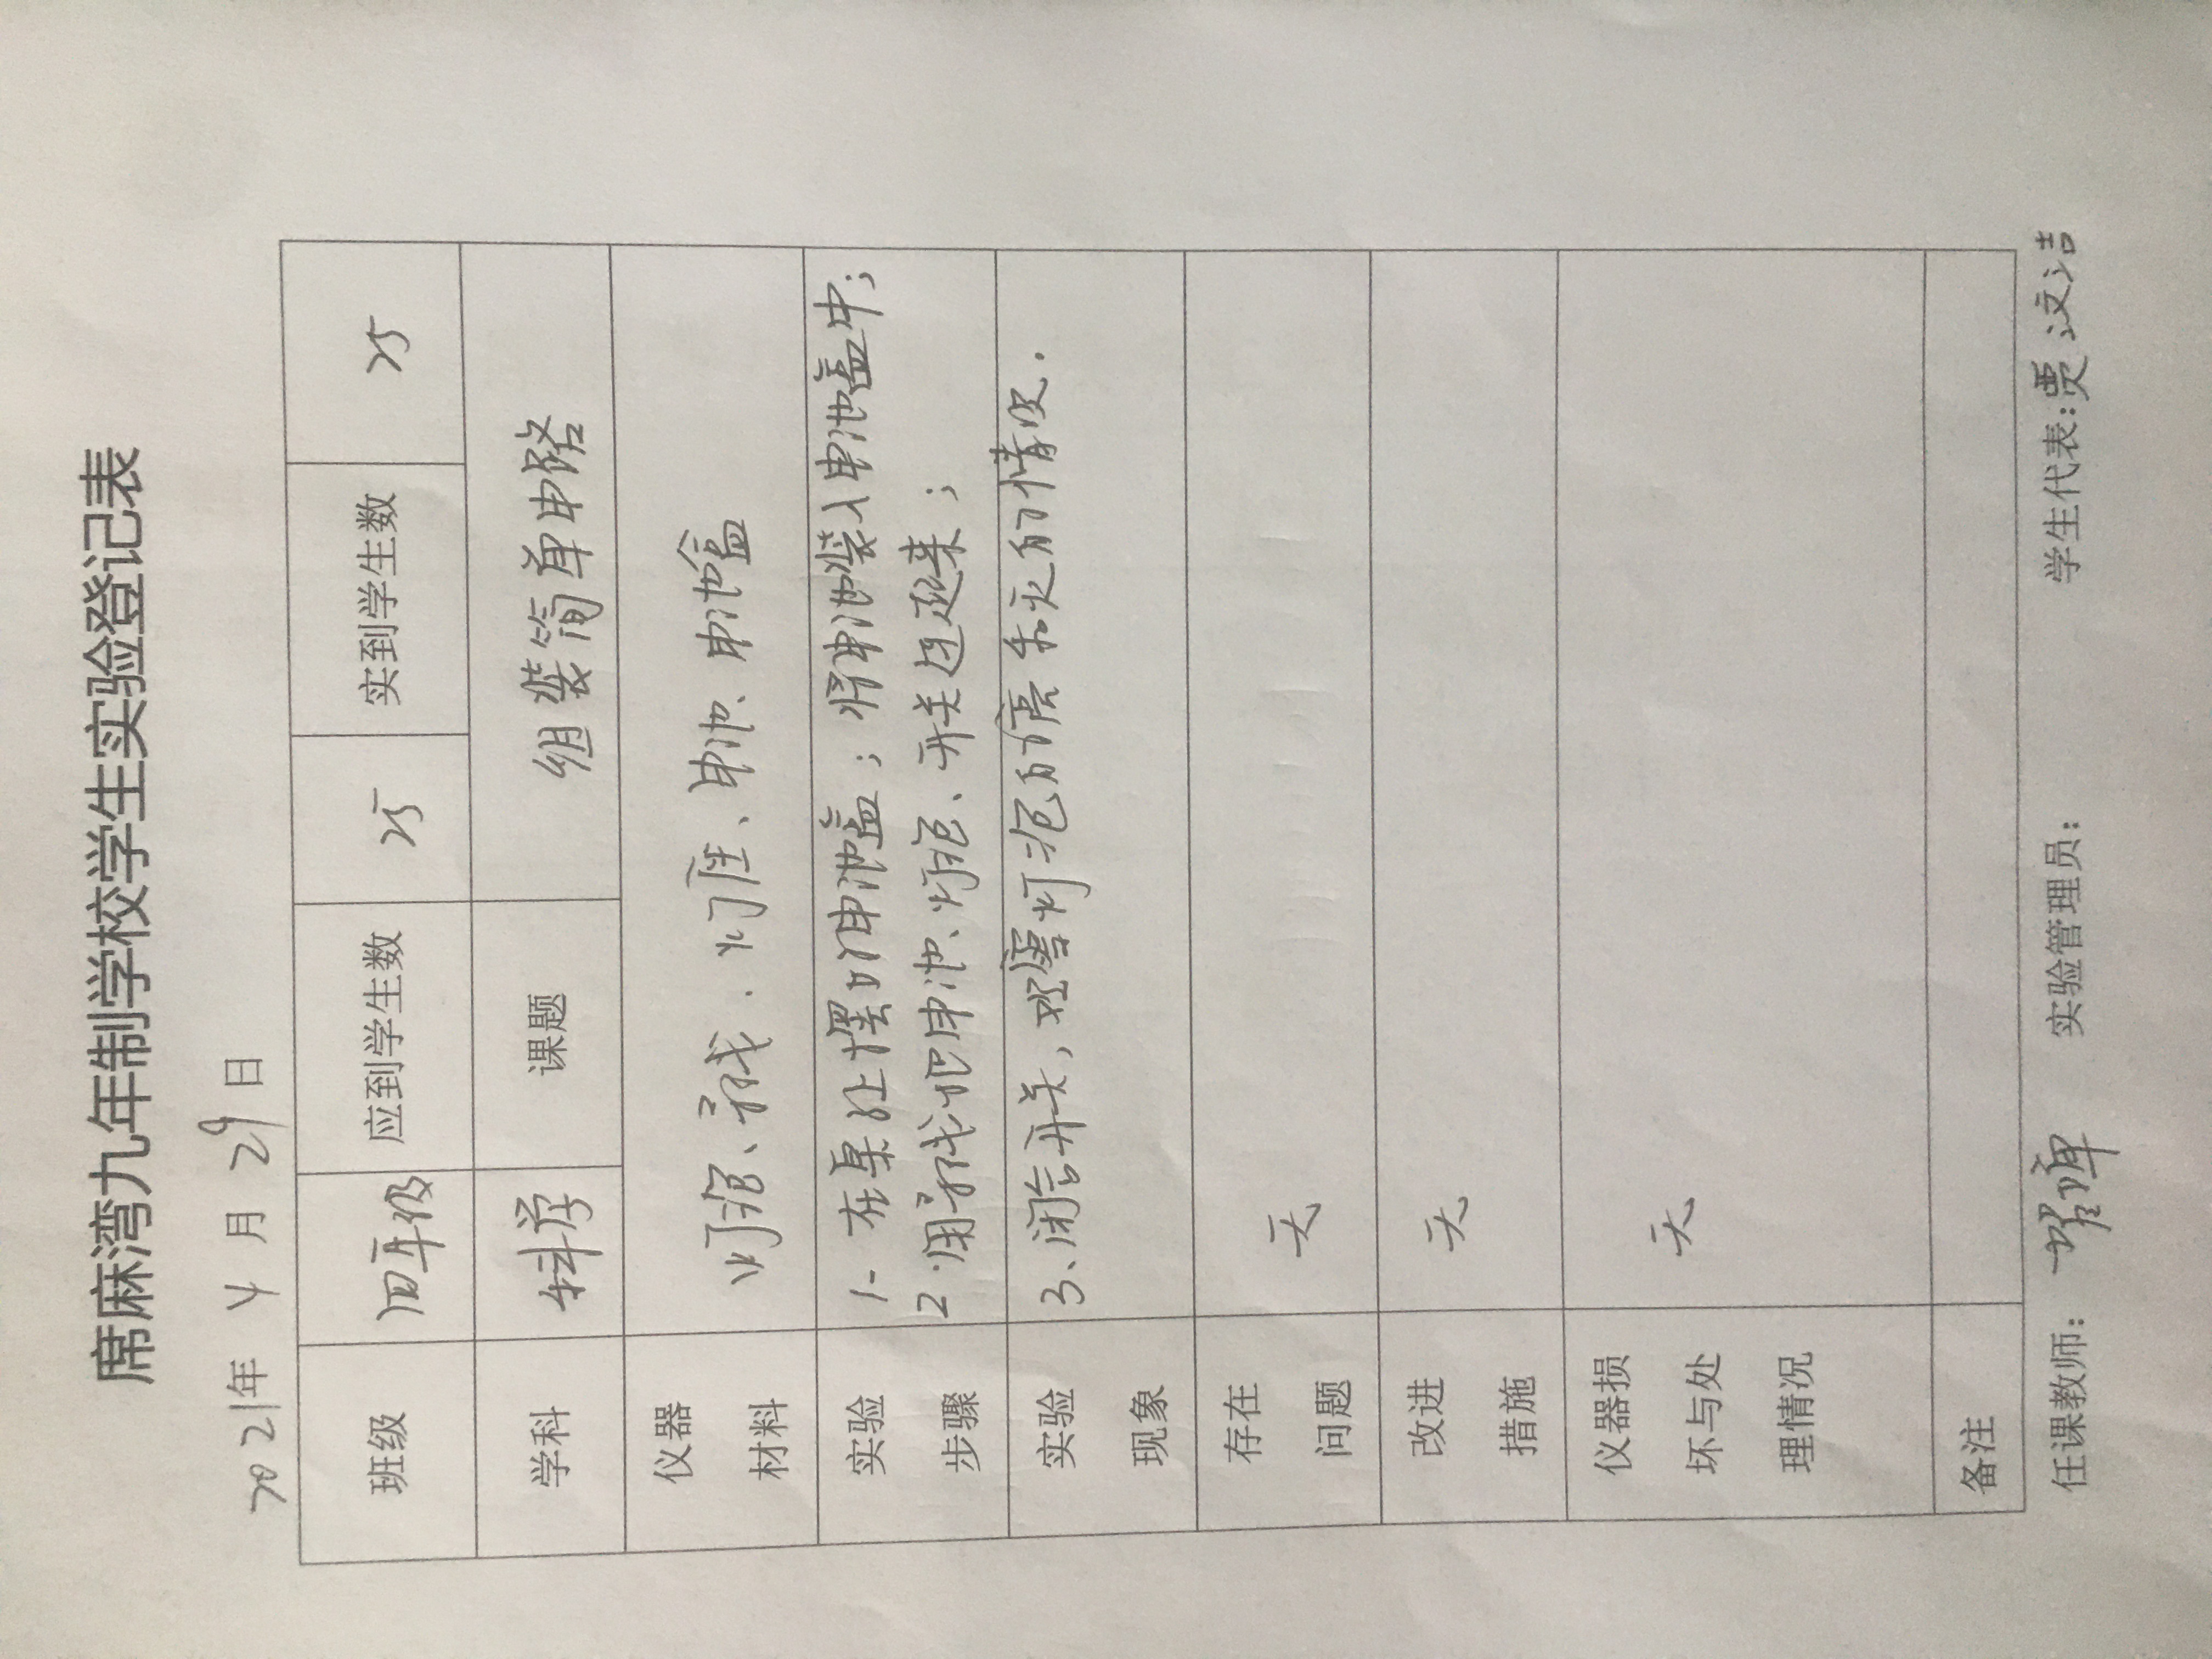 席麻湾九年制学校学生实验登记表
2021年 4 月 29 日
班级 四年级 应到学生数 25 实到学生数 25
学科 科学 课题 组装简单电路
仪器 材料 灯泡、导线、灯座、电池、电池盒
实验 步骤 1. 在桌面上摆好电池盒；将电池装入电池盒中；
2.用导线把电池、灯泡、开关连起来；
实验 现象 3、闭合开关，观察灯泡的亮和灭的情况.
存在 问题 无
改进 措施 无
仪器损 坏与处 理情况 无
备注
任课教师： 实验管理员： 学生代表：贾汶洁